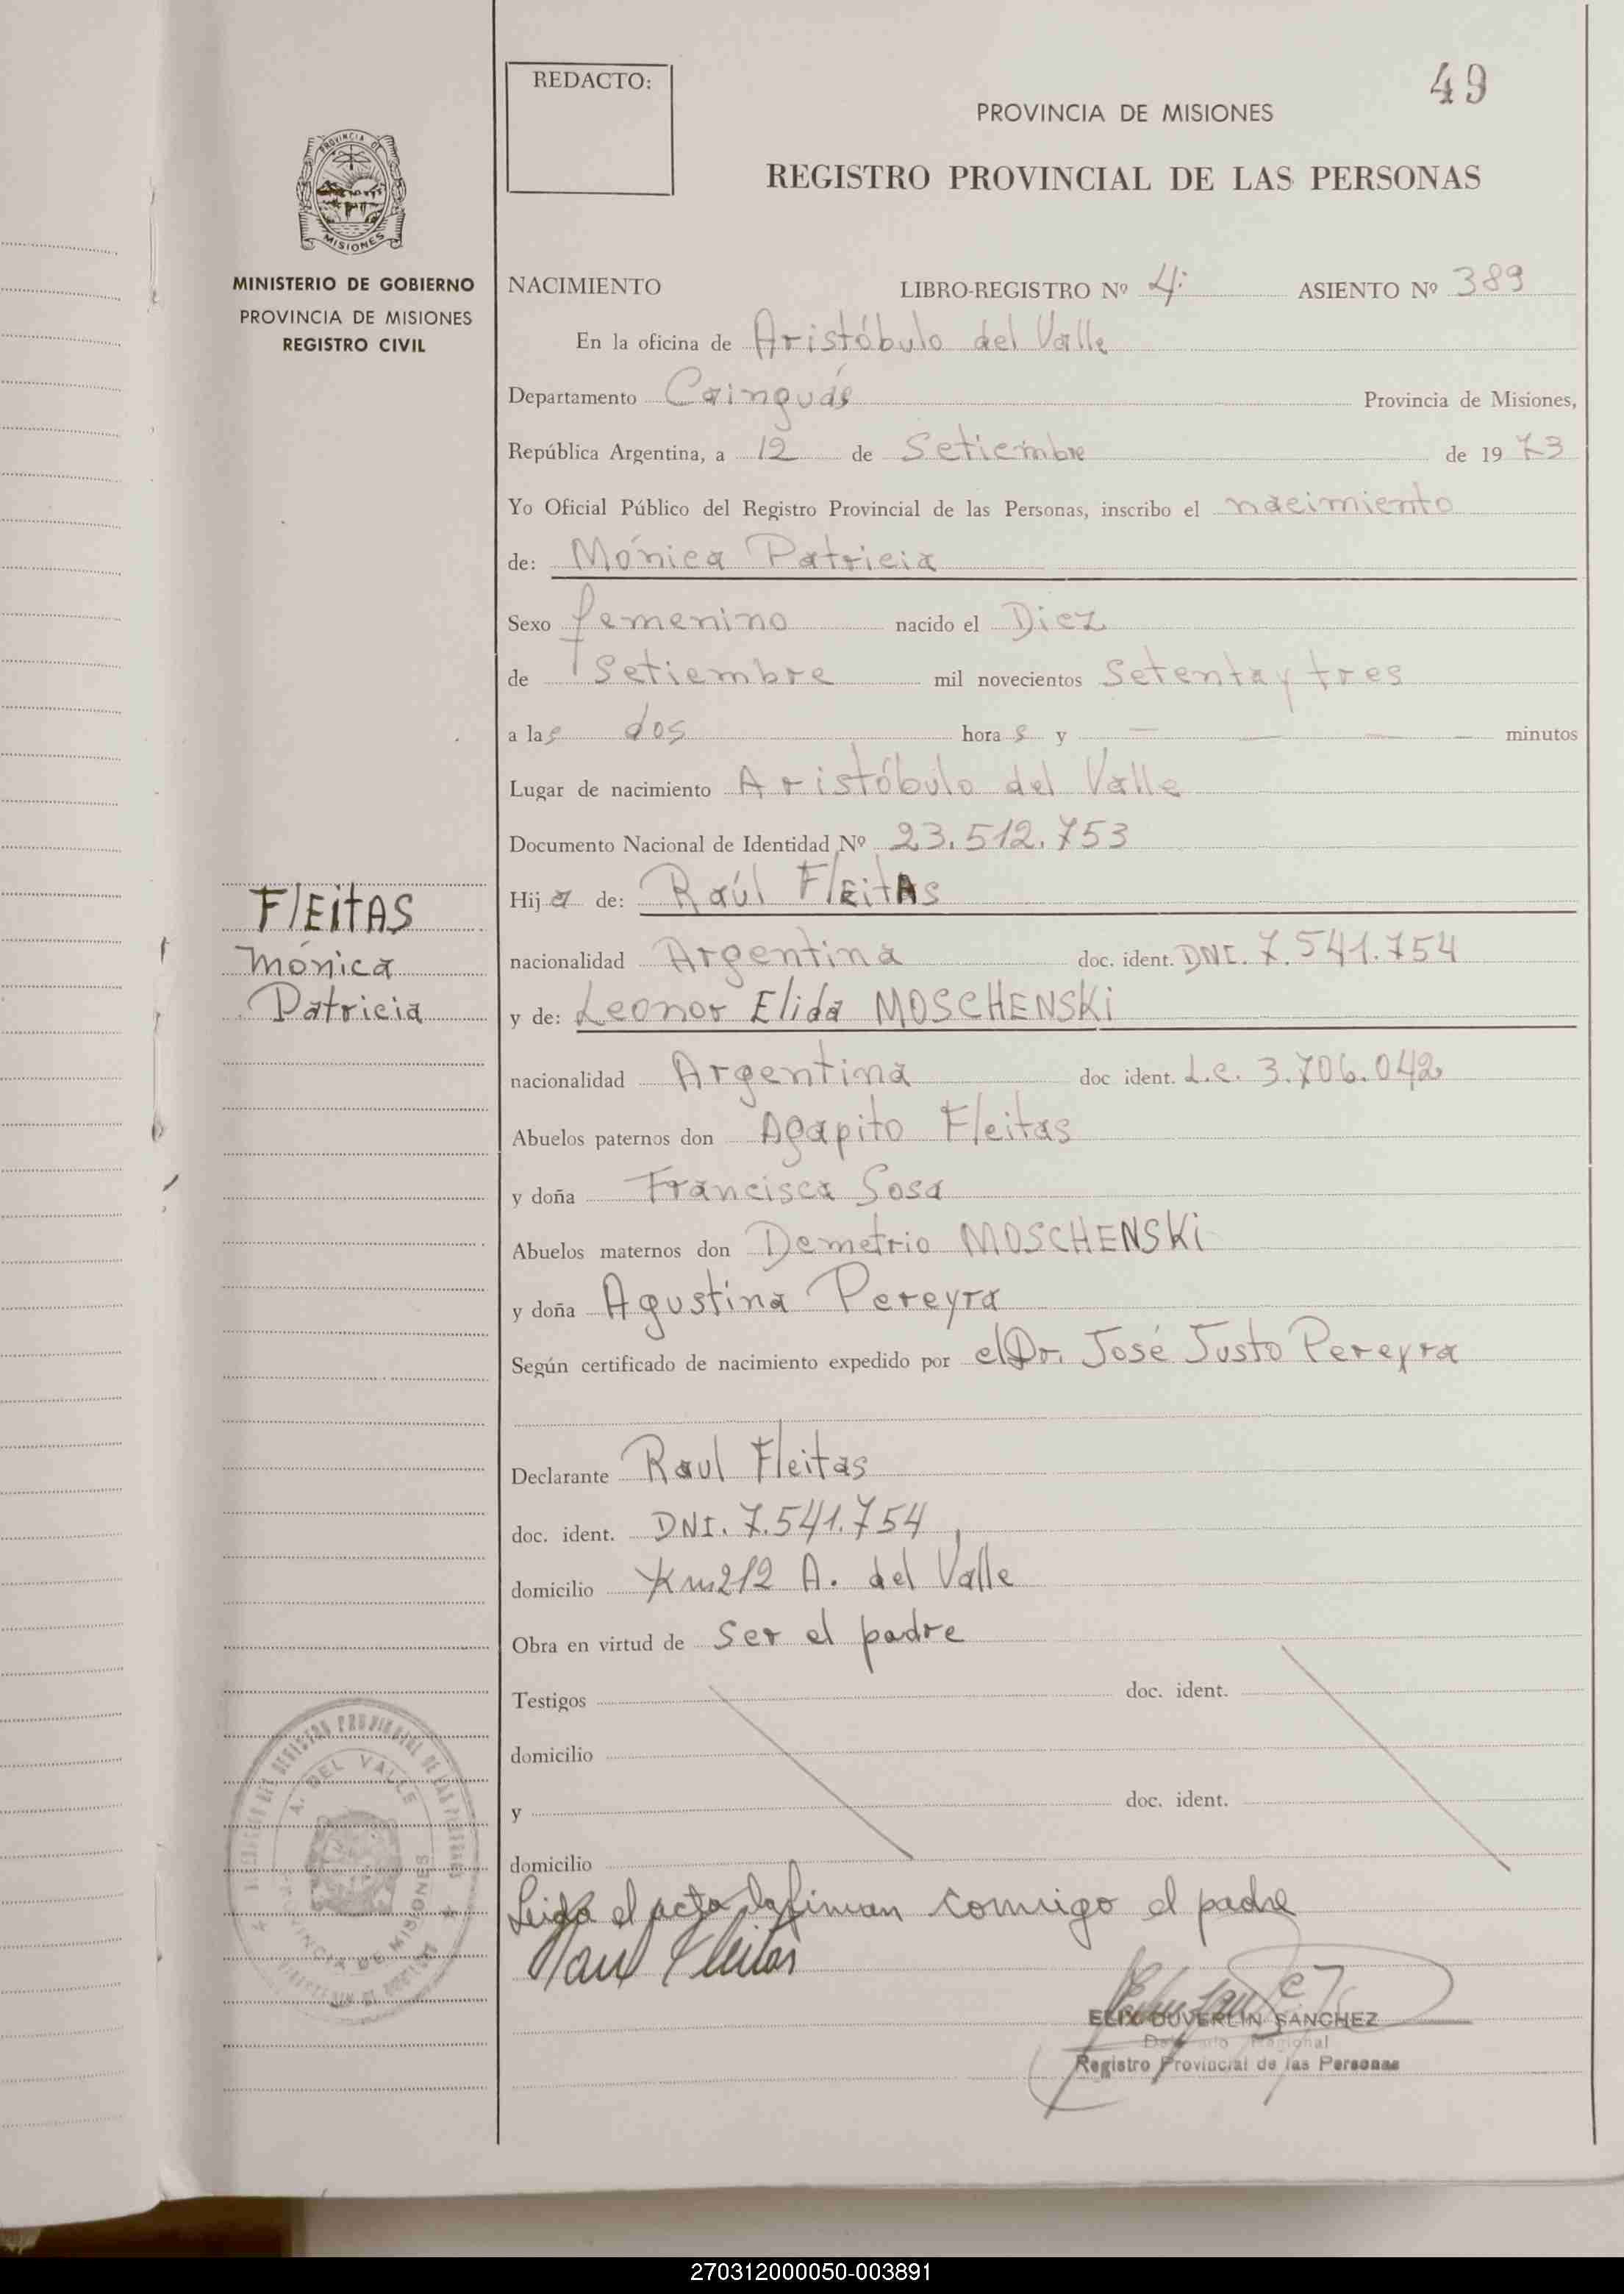 49
REDACTO:
PROVINCIA DE MISIONES
REGISTRO PROVINCIAL DE LAS PERSONAS
PROVINCIA DE
MISIONES
MINISTERIO DE GOBIERNO
PROVINCIA DE MISIONES
REGISTRO CIVIL
NACIMIENTO LIBRO-REGISTRO Nº 4: ASIENTO Nº 389
En la oficina de Aristóbulo del Valle
Departamento Cainguás Provincia de Misiones,
República Argentina, a 12 de Setiembre de 1973
Yo Oficial Público del Registro Provincial de las Personas, inscribo el nacimiento
de: Mónica Patricia
Sexo femenino nacido el Diez
de Setiembre mil novecientos Setenta y tres
a las dos horas y — — — — minutos
Lugar de nacimiento Aristóbulo del Valle
Documento Nacional de Identidad Nº 23.512.753
Hija de: Raúl FlEitAs
nacionalidad Argentina doc. ident. DNI. 7.541.754
y de: Leonor Elida MOSCHENSKi
nacionalidad Argentina doc ident. L.c. 3.706.042
Abuelos paternos don Agapito Fleitas
y doña Francisca Sosa
Abuelos maternos don Demetrio MOSCHENSKi
y doña Agustina Pereyra
Según certificado de nacimiento expedido por el Dr. José Justo Pereyra
Declarante Raul Fleitas
doc. ident. DNI. 7.541.754
domicilio Km 212 A. del Valle
Obra en virtud de ser el padre
Testigos doc. ident.
domicilio
y doc. ident.
domicilio
Leida el acta la firman conmigo el padre
Raul Fleitas
ELIX DUVERLIN SANCHEZ
Registro Provincial de las Personas
FlEitAS
Mónica
Patricia
REGISTRO PROVINCIAL DE LAS PERSONAS
A. DEL VALLE
PROVINCIA DE MISIONES
270312000050-003891